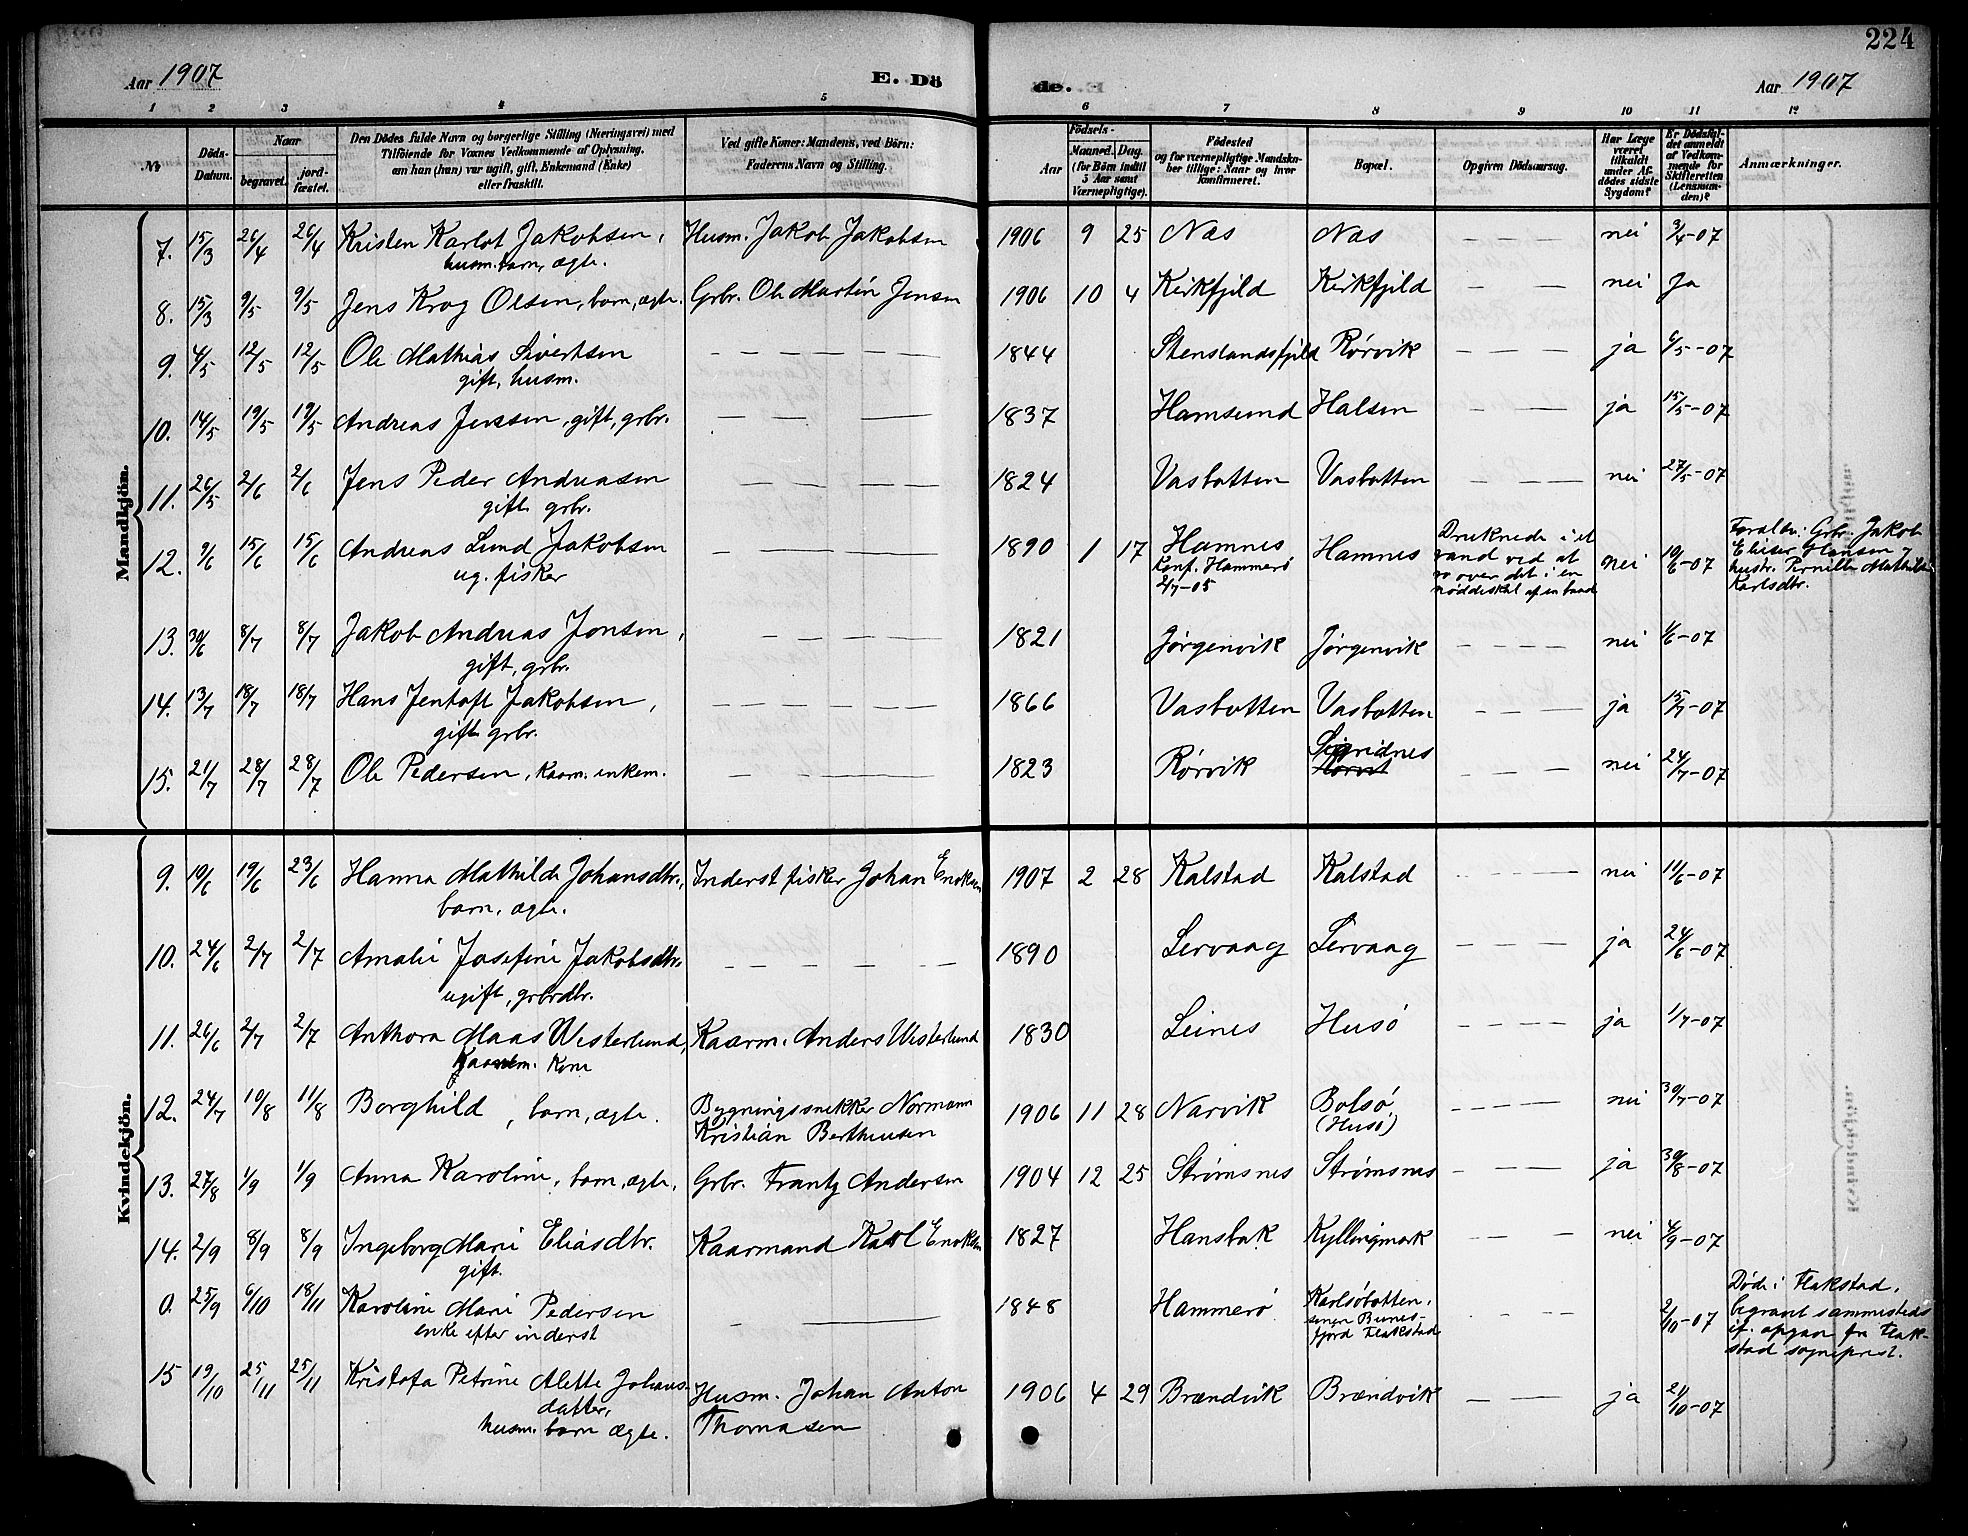 224
Aar 1907 E. Dö de. Aar 1907
1 2 3 4 5 6 7 8 9 10 11 12
№ Döds-Datum. Naar begravet. jordfæstet. Den Dödes fulde Navn og borgerlige Stilling (Næringsvei) med Tilföiende for Voxnes Vedkommende af Oplysning, om han (hun) var ugift, gift, Enkemand (Enke) eller fraskilt. Ved gifte Koner: Mandens, ved Börn: Faderens Navn og Stilling. Födsels- Aar Maaned. Dag. (for Börn indtil 5 Aar samt Værnepligtige). Födested og for værnepligtige Mandskaber tillige: Naar og hvor konfirmeret. Bopæl. Opgiven Dödsaarsag. Har Læge været tilkaldt under Afdödes sidste Sygdom? Er Dödsfaldet anmeldt af Vedkommende for Skifteretten (Lensmanden)? Anmærkninger.
Mandkjön.
7. 15/3 26/4 26/4 Kristen Karlot Jakobsen, Husm. Jakob Jakobsen 1906 9 25 Næs Næs nei 3/4-07
husm. barn, ægte.
8. 15/3 9/5 9/5 Jens Krog Olsen, barn, ægte. Grbr. Ole Martin Jensen 1906 10 4 Kirkfjeld Kirkfjeld nei Ja
9. 4/5 12/5 12/5 Ole Mathias Sivertsen 1844 Stenslandsfjeld Rørvik ja 6/5-07
gift, husm.
10. 14/5 19/5 19/5 Andreas Jenssen, gift, grbr. 1837 Hamsund Halsen ja 15/5-07
11. 26/5 2/6 2/6 Jens Peder Andreasen 1824 Vasbotten Vasbotten nei 27/5-07
gift grbr.
12. 9/6 15/6 15/6 Andreas Lund Jakobsen 1890 1 17 Hamnes Hamnes Druknede i et nei 10/6-07 Forældre: Grbr. Jakob
ug. fisker Konf. Hammerø vand ved at Eliser Hansen &
2/7-05 ro over det i en hustr. Pernille Mathilde
nøddeskal af en baad Karlsdtr.
13. 30/6 8/7 8/7 Jakob Andreas Jonsen, 1821 Jørgenvik Jørgenvik nei 1/6-07
gift, grbr.
14. 13/7 18/7 18/7 Hans Jentoft Jakobsen, 1866 Vasbotten Vasbotten ja 15/7-07
gift grbr.
15. 21/7 28/7 28/7 Ole Pedersen, kaarm. enkem. 1823 Rørvik Sigridnes nei 24/7-07
Kvindekjön.
9. 10/6 19/6 23/6 Hanna Mathilde Johansdtr., Inderst fisker Johan Enoksen 1907 2 28 Kalstad Kalstad nei 11/6-07
barn, ægte.
10. 24/6 2/7 2/7 Amalie Josefine Jakobsdtr. 1890 Lervaag Lervaag ja 24/6-07
ugift, grbrdtr.
11. 26/6 2/7 2/7 Anthora Maas Westerlund, Kaarm. Anders Westerlund 1830 Leines Husø ja 1/7-07
Kaarm. Kone
12. 24/7 10/8 11/8 Borghild, barn, ægte. Bygningssnekker Normann 1906 11 28 Narvik Bolsø nei 30/7-07
Kristian Bertheusen (Husø)
13. 27/8 1/9 1/9 Anna Karoline, barn, ægte, Grbr. Frantz Andersen 1904 12 25 Strømsnes Strømsnes ja 30/8-07
14. 2/9 8/9 8/9 Ingeborg Marie Eliasdtr. Kaarmand Karl Enoksen 1827 Hansbak Kyllingmark nei 4/9-07
gift.
0. 25/9 6/10 18/11 Karoline Marie Pedersen 1848 Hammerø Karlsøbotten, 2/10-07 Døde i Flakstad,
enke efter inderst senere Bunes- begravet sammesteds
fjord Flakstad if. opgave fra Flak-
stad sogneprest.
15 19/10 25/11 25/11 Kristofa Petrine Alette Johans- Husm. Johan Anton 1906 4 29 Brændvik Brændvik ja 21/10-07
datter, Thomasen
husm. barn ægte.